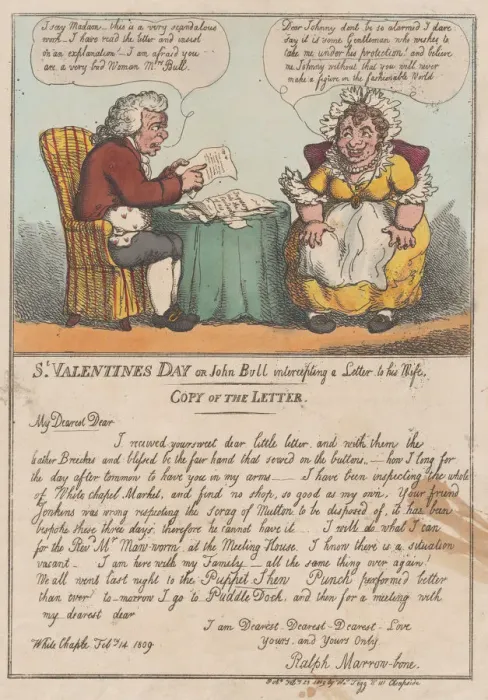 I say Madam this is a very scandalous
work — I have read the letter and insist
on an explanation! — I am afraid you
are a very bad Woman Mrs Bull.
Dear Johnny dont be so alarmed I dare
say it is some Gentleman who wishes to
take me under his protection! and believe
me Johnny without that you will never
make a figure in the fashionable World
St. VALENTINES DAY OR John Bull intercepting a Letter to his Wife.
COPY OF THE LETTER.
My Dearest Dear
I received your sweet dear little letter and with them the
leather Breeches and blessed be the fair hand that sowed on the buttons. — how I long for
the day after tomorrow to have you in my arms — I have been inspecting the whole
of White chapel Market, and find no shop, so good as my own. Your friend
Jonkens was wrong respecting the Scrag of Mutton to be disposed of, it has been
bespoke these three days, therefore he cannot have it — I will do what I can
for the Revd Mr Maw-worm, at the Meeting House. I know there is a situation
vacant. — I am here with my Family — all the same thing over again!
We all went last night to the Puppet Shew Punch performed better
than ever! to-morrow I go to Puddle Dock, and then for a meeting with
my dearest dear
I am Dearest - Dearest - Dearest - Love
Yours. and Yours Only
White Chaple Feby 14 1809
Ralph Marrow-bone.
Tegg No 111 Cheapside